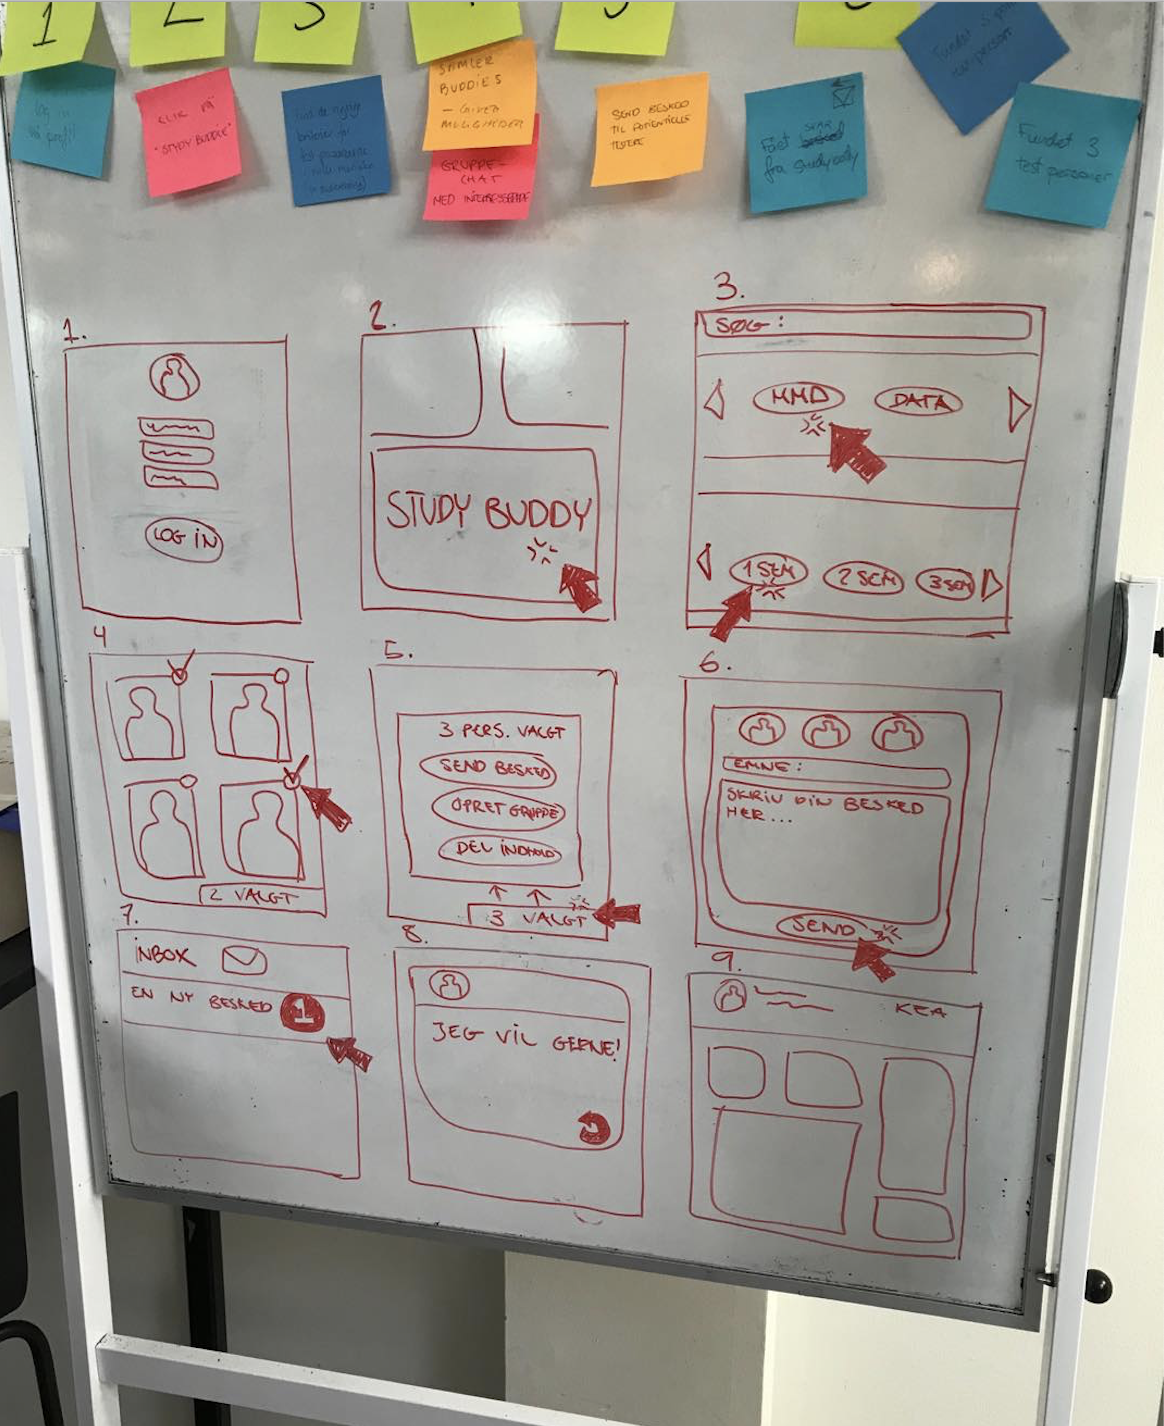 1
2
3
5
LOG IN
CLIK PÅ
"STUDY BUDDIE"
SAMLER
BUDDIES
- GIVER
MULIGHEDER
GRUPPE-
CHAT
MED INTERESSEREDE
SEND BESKED
TIL POTENTIELLE
TESTERE
SVAR
Fået
fra studybuddy
Fundet 3
test personer
1.
LOG IN
2.
STUDY BUDDY
3.
SØG :
MMD DATA
1 SEM 2 SEM 3 SEM
4
2 VALGT
5.
3 PERS. VALGT
SEND BESKED
OPRET GRUPPE
DEL INDHOLD
3 VALGT
6.
EMNE :
SKRIV DIN BESKED
HER...
SEND
7.
INBOX
EN NY BESKED 1
8.
JEG VIL GERNE!
9.
KEA